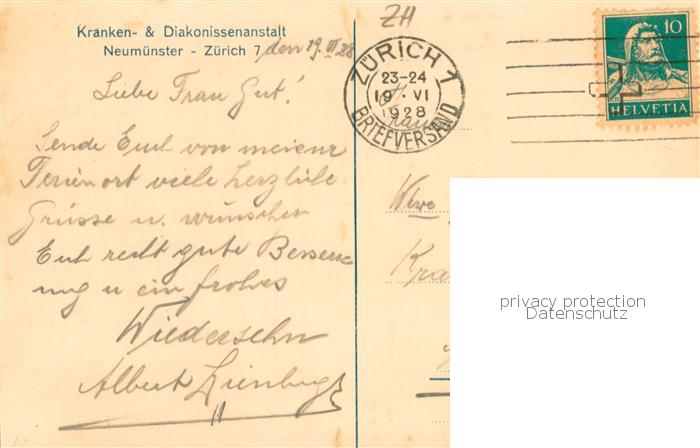 Kranken- & Diakonissenanstalt
Neumünster - Zürich 7 den 19. VI 28
Liebe Frau Gut!
Sende Euch von meinem
Ferienort viele herzliche
Grüsse u. wünsche
Euch recht gute Besser-
ung u ein frohes
Wiedersehn
Albert
ZH
ZÜRICH 1
23-24
19. VI
1928
BRIEFVERSAND
10
HELVETIA
Frau
Kra
privacy protection
Datenschutz